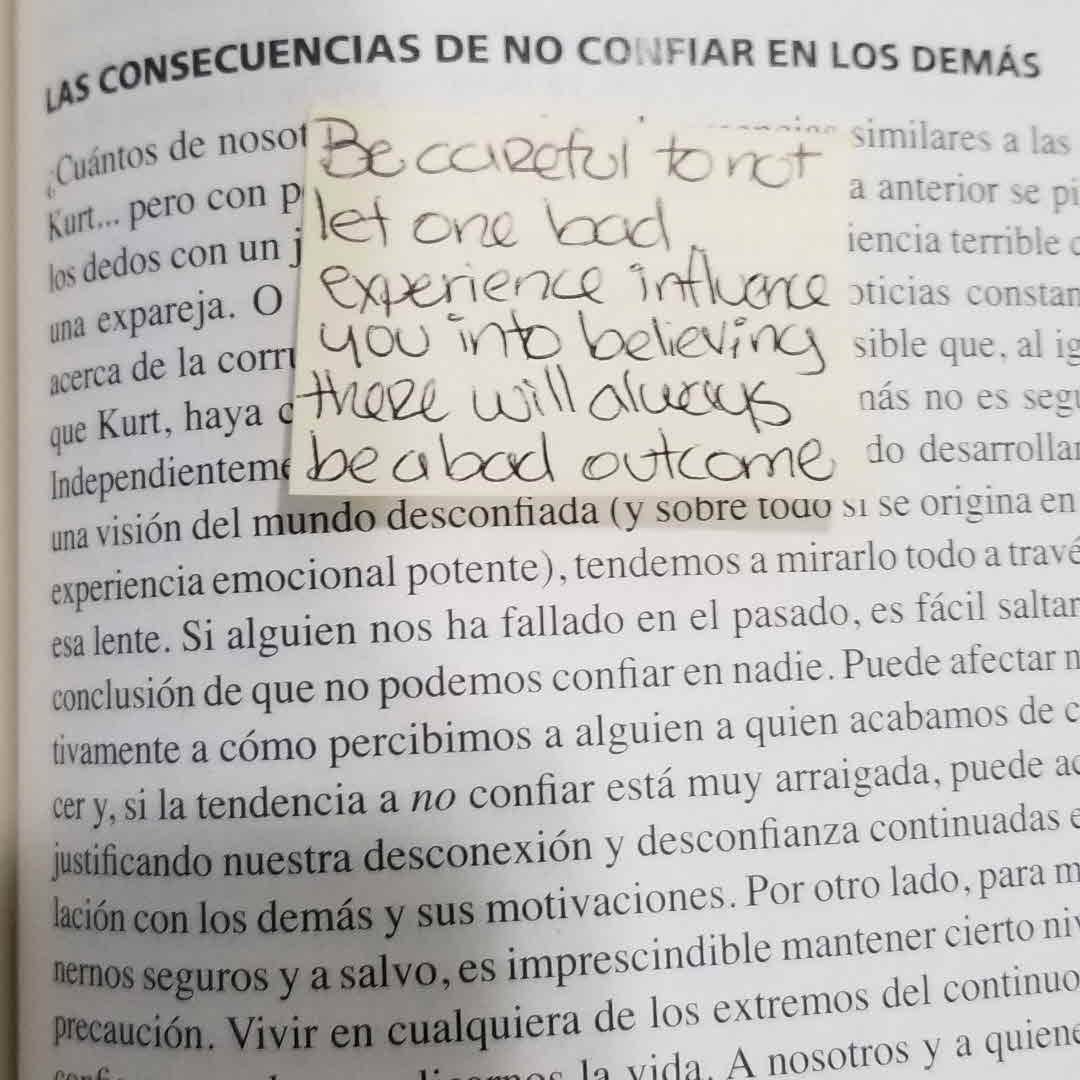 LAS CONSECUENCIAS DE NO CONFIAR EN LOS DEMÁS
¿Cuántos de similares a las
Kurt... pero con a anterior se
los dedos con un terrible
una expareja. O constan
acerca de la sible que, al
que Kurt, haya no es
do desarrollar
Be careful to not
let one bad
experience influence
you into believing
there will always
be a bad outcome
una visión del mundo desconfiada (y sobre todo si se origina en
experiencia emocional potente), tendemos a mirarlo todo a travé
esa lente. Si alguien nos ha fallado en el pasado, es fácil saltar
conclusión de que no podemos confiar en nadie. Puede afectar n
tivamente a cómo percibimos a alguien a quien acabamos de c
cer y, si la tendencia a no confiar está muy arraigada, puede ac
justificando nuestra desconexión y desconfianza continuadas e
lación con los demás y sus motivaciones. Por otro lado, para m
nernos seguros y a salvo, es imprescindible mantener cierto ni
precaución. Vivir en cualquiera de los extremos del continuo
la vida. A nosotros y a quiene